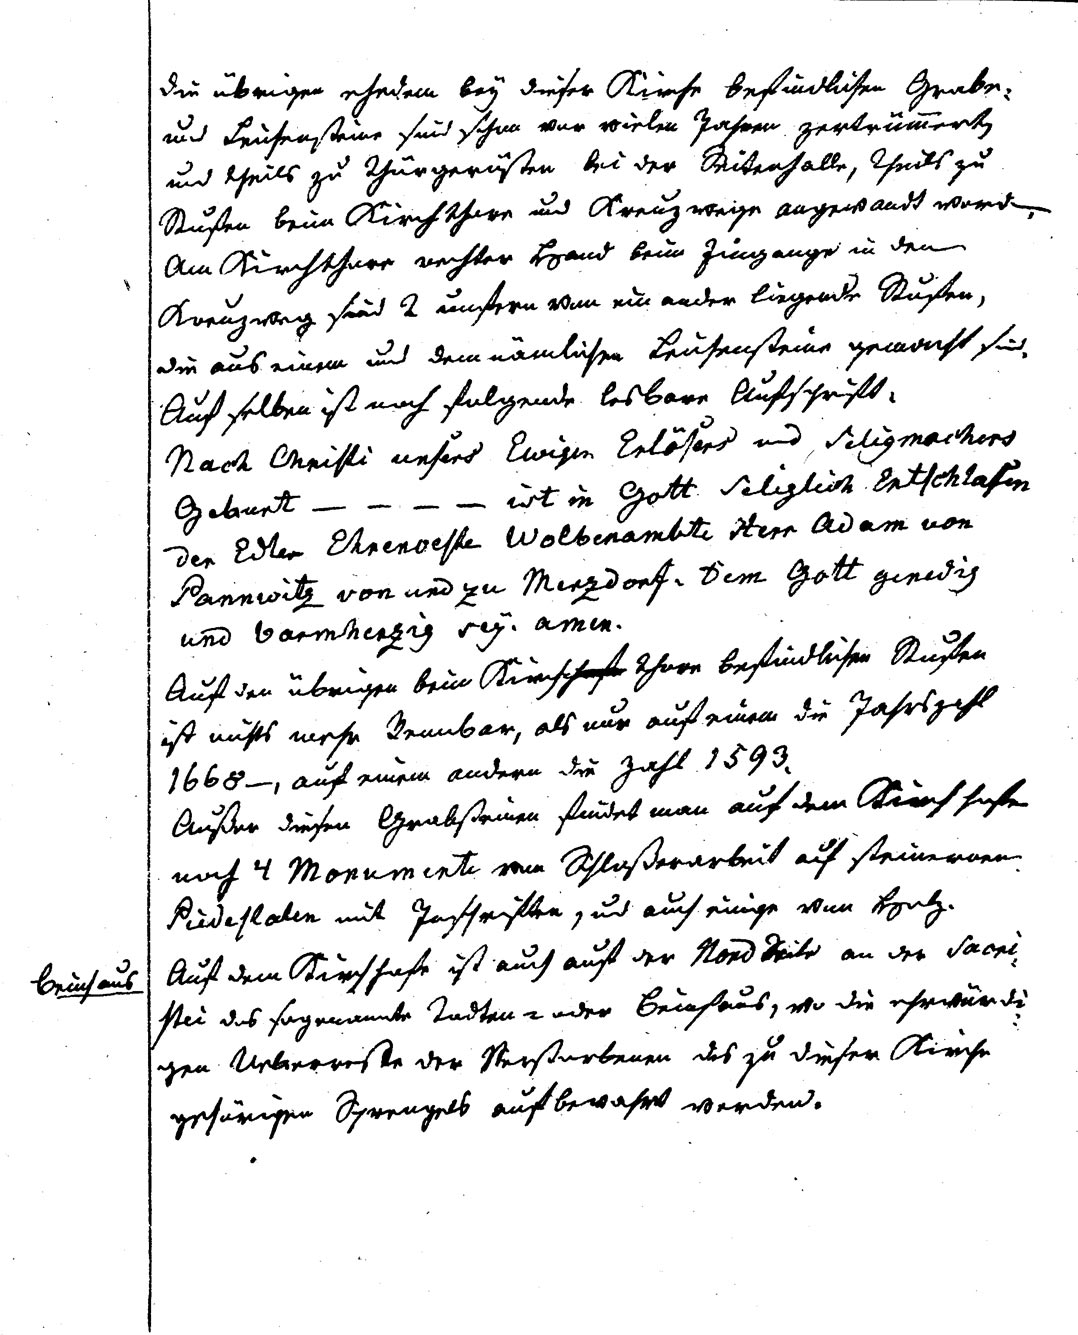 die übrigen ehedem beÿ dieser Kirche befindlichen Grabe-
und Leichensteine sind schon vor vielen Jahren zertrümmert,
und theils zu Thürgerüsten bei der Seitenhalle, theils zu
Stuffen beim Kirchthore und Kreuzwege angewandt word.
Am Kirchthore rechter Hand beim Eingange in den
Kreuzweg sind 2 unfern von einander liegende Stuffen,
die aus einem und dem nämlichen Leichensteine gemacht sind.
Auf selben ist noch folgende lesbare Aufschrift.
Nach Christi unsers Ewigen Erlösers und Seligmachers
Geburt — — — — ist in Gott Seliglich Entschlafen
der Edler Ehrenveste Wolbenambte Herr Adam von
Pannwitz von und zu Merzdorf. Dem Gott genedig
und barmherzig seÿ. amen.
Auf den übrigen beim Kirchthore befindlichen Stuffen
ist nichts mehr kennbar, als nur auf einem die Jahrszahl
1668—, auf einem andern die Zahl 1593.
Außer diesen Grabsteinen findet man auf dem Kirchhofe
noch 4 Monumente von Schloßerarbeit auf steinernen
Piedestalen mit Inschriften, und auch einige von Holz.
Beinhaus
Auf dem Kirchhofe ist auch auf der Nord Seite an der Sacri-
stei das sogenannte Todten- oder Beinhaus, wo die ehrwürdi-
gen Ueberreste der Verstorbenen des zu dieser Kirche
gehörigen Sprengels aufbewahrt werden.